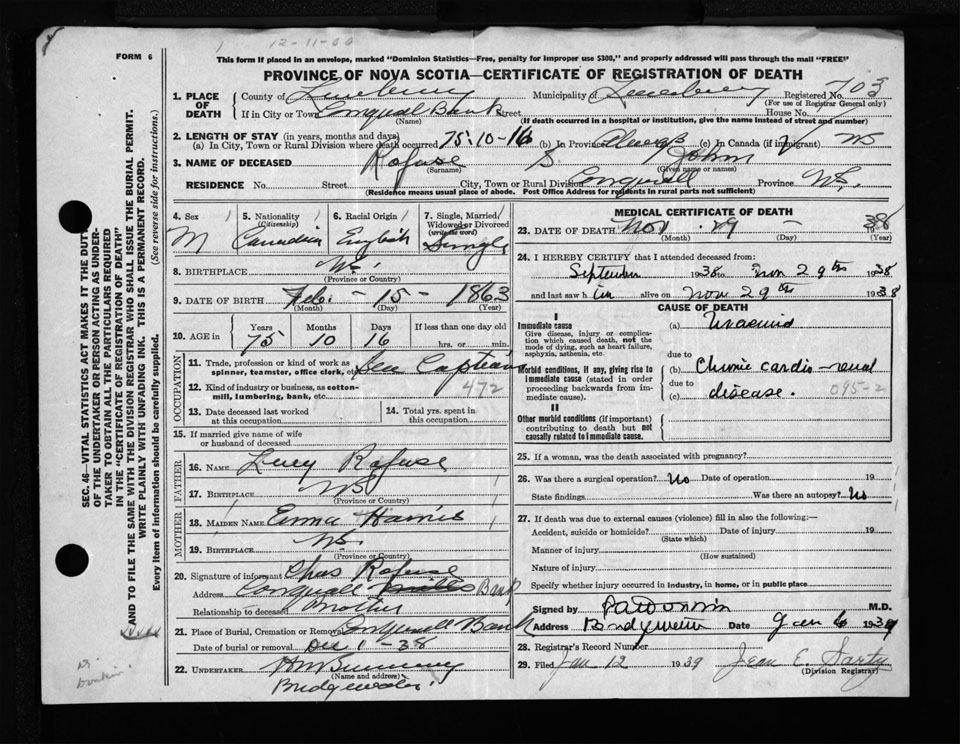 12-11-60
FORM 6
This form if placed in an envelope, marked "Dominion Statistics—Free, penalty for improper use $300," and properly addressed will pass through the mail "FREE"
PROVINCE OF NOVA SCOTIA—CERTIFICATE OF REGISTRATION OF DEATH
1. PLACE OF DEATH
County of Lunenburg Municipality of Lunenburg Registered No. 703
(For use of Registrar General only)
If in City or Town Conquall Bank Street House No.
(Name) (If death occurred in a hospital or institution, give the name instead of street and number)
2. LENGTH OF STAY (in years, months and days)
(a) In City, Town or Rural Division where death occurred 75-10-16 (b) In Province Always (c) In Canada (if immigrant)
3. NAME OF DECEASED Rafuse S. John
(Surname) (Given name or names)
RESIDENCE No. Street City, Town or Rural Division Conquall Province N.S.
(Residence means usual place of abode. Post Office Address for residents in rural parts not sufficient)
4. Sex M
5. Nationality (Citizenship) Canadian
6. Racial Origin English
7. Single, Married, Widowed or Divorced (write the word) Single
8. BIRTHPLACE N.S.
(Province or Country)
9. DATE OF BIRTH Feb. - 15 - 1863
(Month) (Day) (Year)
10. AGE in Years Months Days If less than one day old
75 10 16 hrs. or min.
OCCUPATION
11. Trade, profession or kind of work as spinner, teamster, office clerk, etc. Sea Captain
12. Kind of industry or business, as cotton-mill, lumbering, bank, etc. 472
13. Date deceased last worked at this occupation
14. Total yrs. spent in this occupation
15. If married give name of wife or husband of deceased
FATHER
16. Name Rafuse
17. Birthplace NS
(Province or Country)
MOTHER
18. Maiden Name Emma Harris
19. Birthplace N.S.
(Province or Country)
20. Signature of informant Chas Rafuse
Address Conquall Mills Bank
Relationship to deceased Brother
21. Place of Burial, Cremation or Removal Conquall Bank
Date of burial or removal Dec 1 - 38
22. Undertaker
(Name and address)
Bridgewater
MEDICAL CERTIFICATE OF DEATH
23. DATE OF DEATH Nov. 29 1938
(Month) (Day) (Year)
24. I HEREBY CERTIFY that I attended deceased from:
September 1938 to Nov 29th 1938
and last saw him alive on Nov 29th 1938
CAUSE OF DEATH
I
Immediate cause
Give disease, injury or complication which caused death, not the mode of dying, such as heart failure, asphyxia, asthenia, etc
(a) Uraemia
due to
Morbid conditions, if any, giving rise to immediate cause (stated in order proceeding backwards from immediate cause).
(b) Chronic cardio-renal
due to
(c) disease. 095-2
II
Other morbid conditions (if important) contributing to death but not causally related to immediate cause.
25. If a woman, was the death associated with pregnancy?
26. Was there a surgical operation? No Date of operation 19
State findings Was there an autopsy? No
27. If death was due to external causes (violence) fill in also the following:—
Accident, suicide or homicide? Date of injury 19
(State which)
Manner of injury
(How sustained)
Nature of injury
Specify whether injury occurred in industry, in home, or in public place
Signed by M.D.
Address Bridgewater Date Jan 6 1939
28. Registrar's Record Number
29. Filed Jan 12 1939 Jean E. Sarty
(Division Registrar)
SEC. 46—VITAL STATISTICS ACT MAKES IT THE DUTY
OF THE UNDERTAKER OR PERSON ACTING AS UNDER-
TAKER TO OBTAIN ALL THE PARTICULARS REQUIRED
IN THE "CERTIFICATE OF REGISTRATION OF DEATH"
AND TO FILE THE SAME WITH THE DIVISION REGISTRAR WHO SHALL ISSUE THE BURIAL PERMIT.
WRITE PLAINLY WITH UNFADING INK. THIS IS A PERMANENT RECORD.
Every item of information should be carefully supplied.
(See reverse side for instructions.)